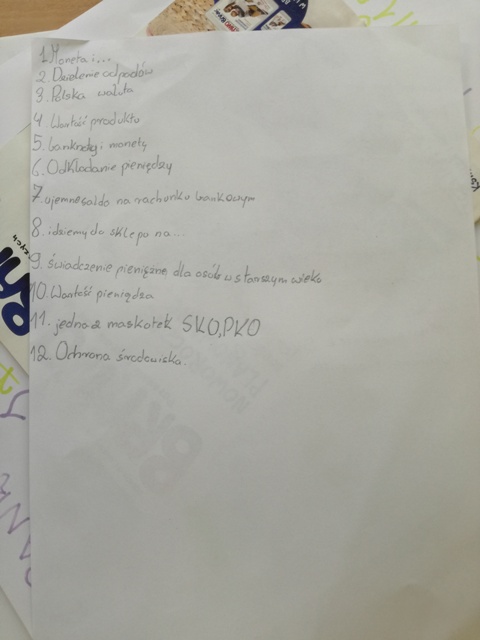 1. Moneta i...
2. Dzielenie odpadów
3. Polska waluta
4. Wartość produktu
5. banknoty i monety
6. Odkładanie pieniędzy
7. ujemne saldo na rachunku bankowym
8. idziemy do sklepu na...
9. świadczenie pieniężne dla osób w starszym wieku
10. Wartość pieniądza
11. jedna z maskotek SKO,PKO
12. Ochrona środowiska.